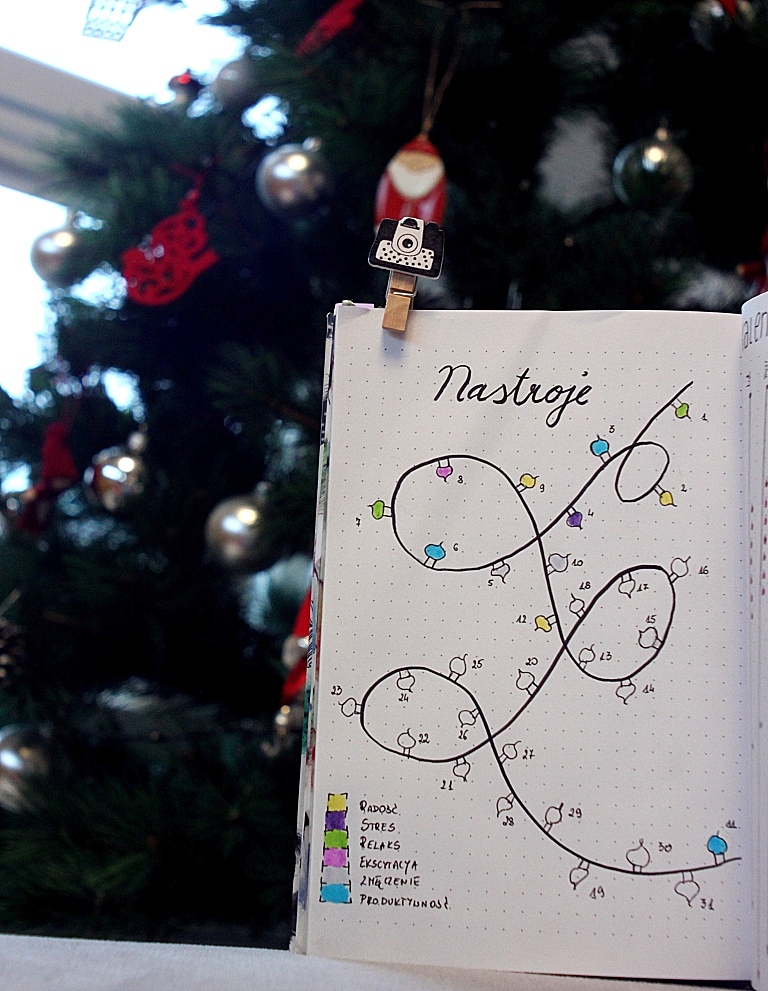 Nastroje
1
3
2
8
9
7
4
6
5
10
16
18
17
12
15
13
14
25
20
23
24
26
22
27
21
28
29
11
30
19
31
RADOŚĆ
STRES
RELAKS
EKSCYTACJA
ZMĘCZENIE
PRODUKTYWNOŚĆ